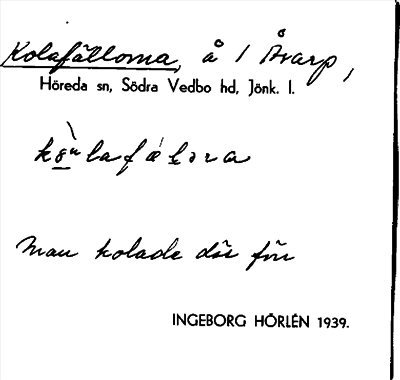 Kolafällorna, å / Åvarp,
Höreda sn, Södra Vedbo hd, Jönk. l.
Man kolade där förr
INGEBORG HÖRLÉN 1939.